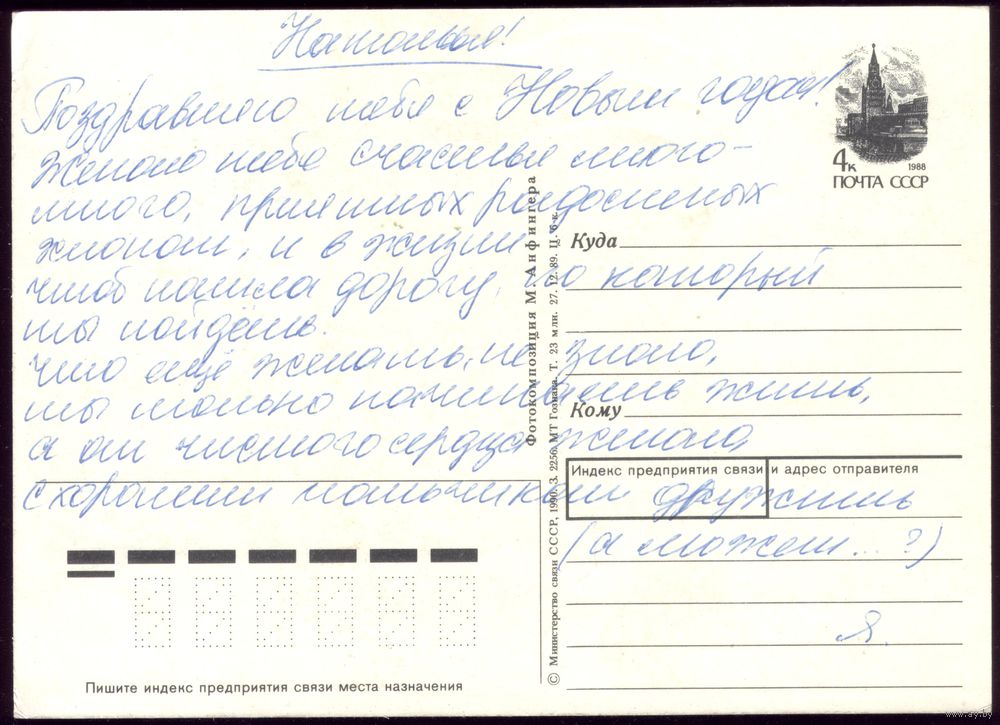 Наталья!
Поздравляю тебя с Новым годом!
Желаю тебе счастья много-
много, приятных радостных
хлопот, и в жизни
чтоб нашла дорогу, по который
ты пойдёшь.
Что ещё желать, не знаю,
ты только начинаешь жить,
а от чистого сердца желаю,
с хорошим мальчиком дружить
(а может...?)
Я.
4к
1988
ПОЧТА СССР
Куда
Кому
Индекс предприятия связи и адрес отправителя
Фотокомпозиция М. Анфингера
© Министерство связи СССР, 1990. З. 2256. МТ Гознака. Т. 23 млн. 27. 12. 89. Ц. 6 к.
Пишите индекс предприятия связи места назначения
www.ay.by